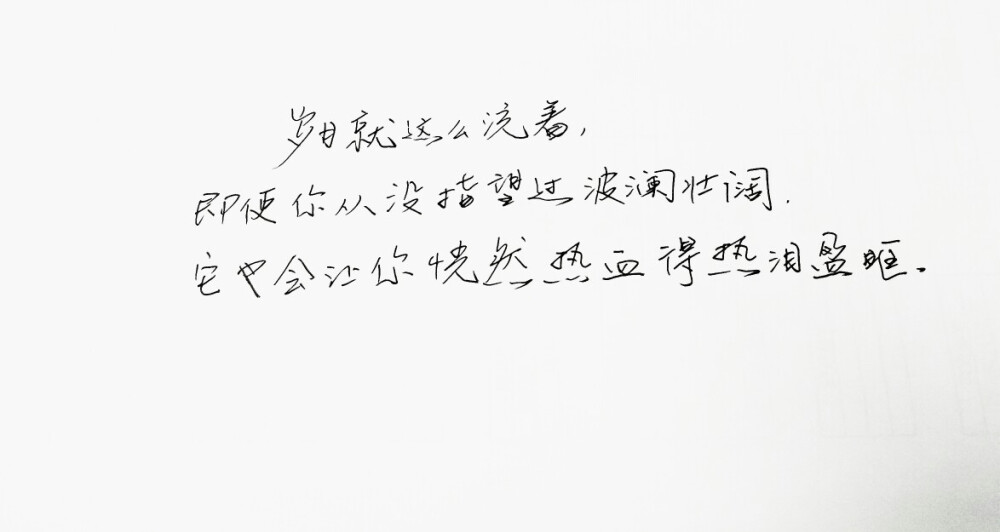 岁月就这么流着,
即使你从没指望过波澜壮阔.
它也会让你恍然热血得热泪盈眶。